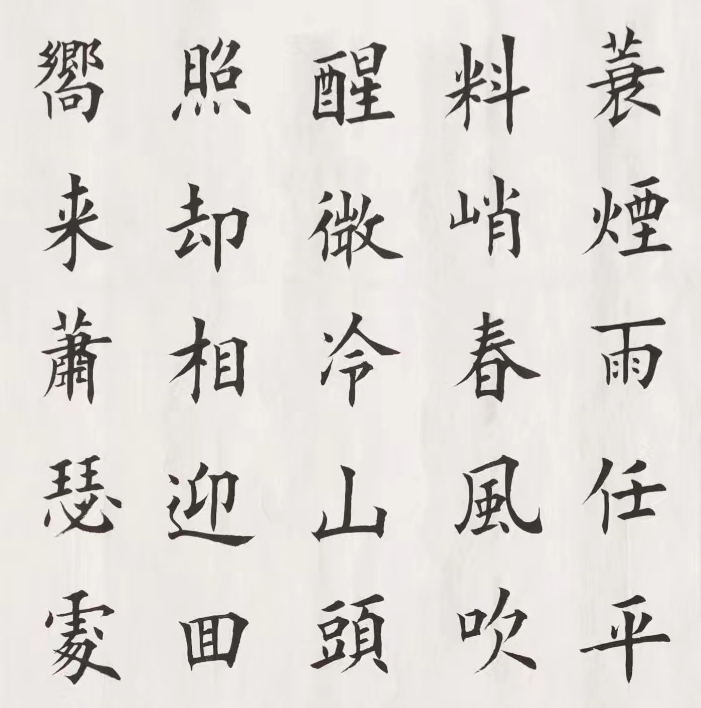 蓑煙雨任平
料峭春風吹
醒微冷山頭
照却相迎回
嚮来蕭瑟處